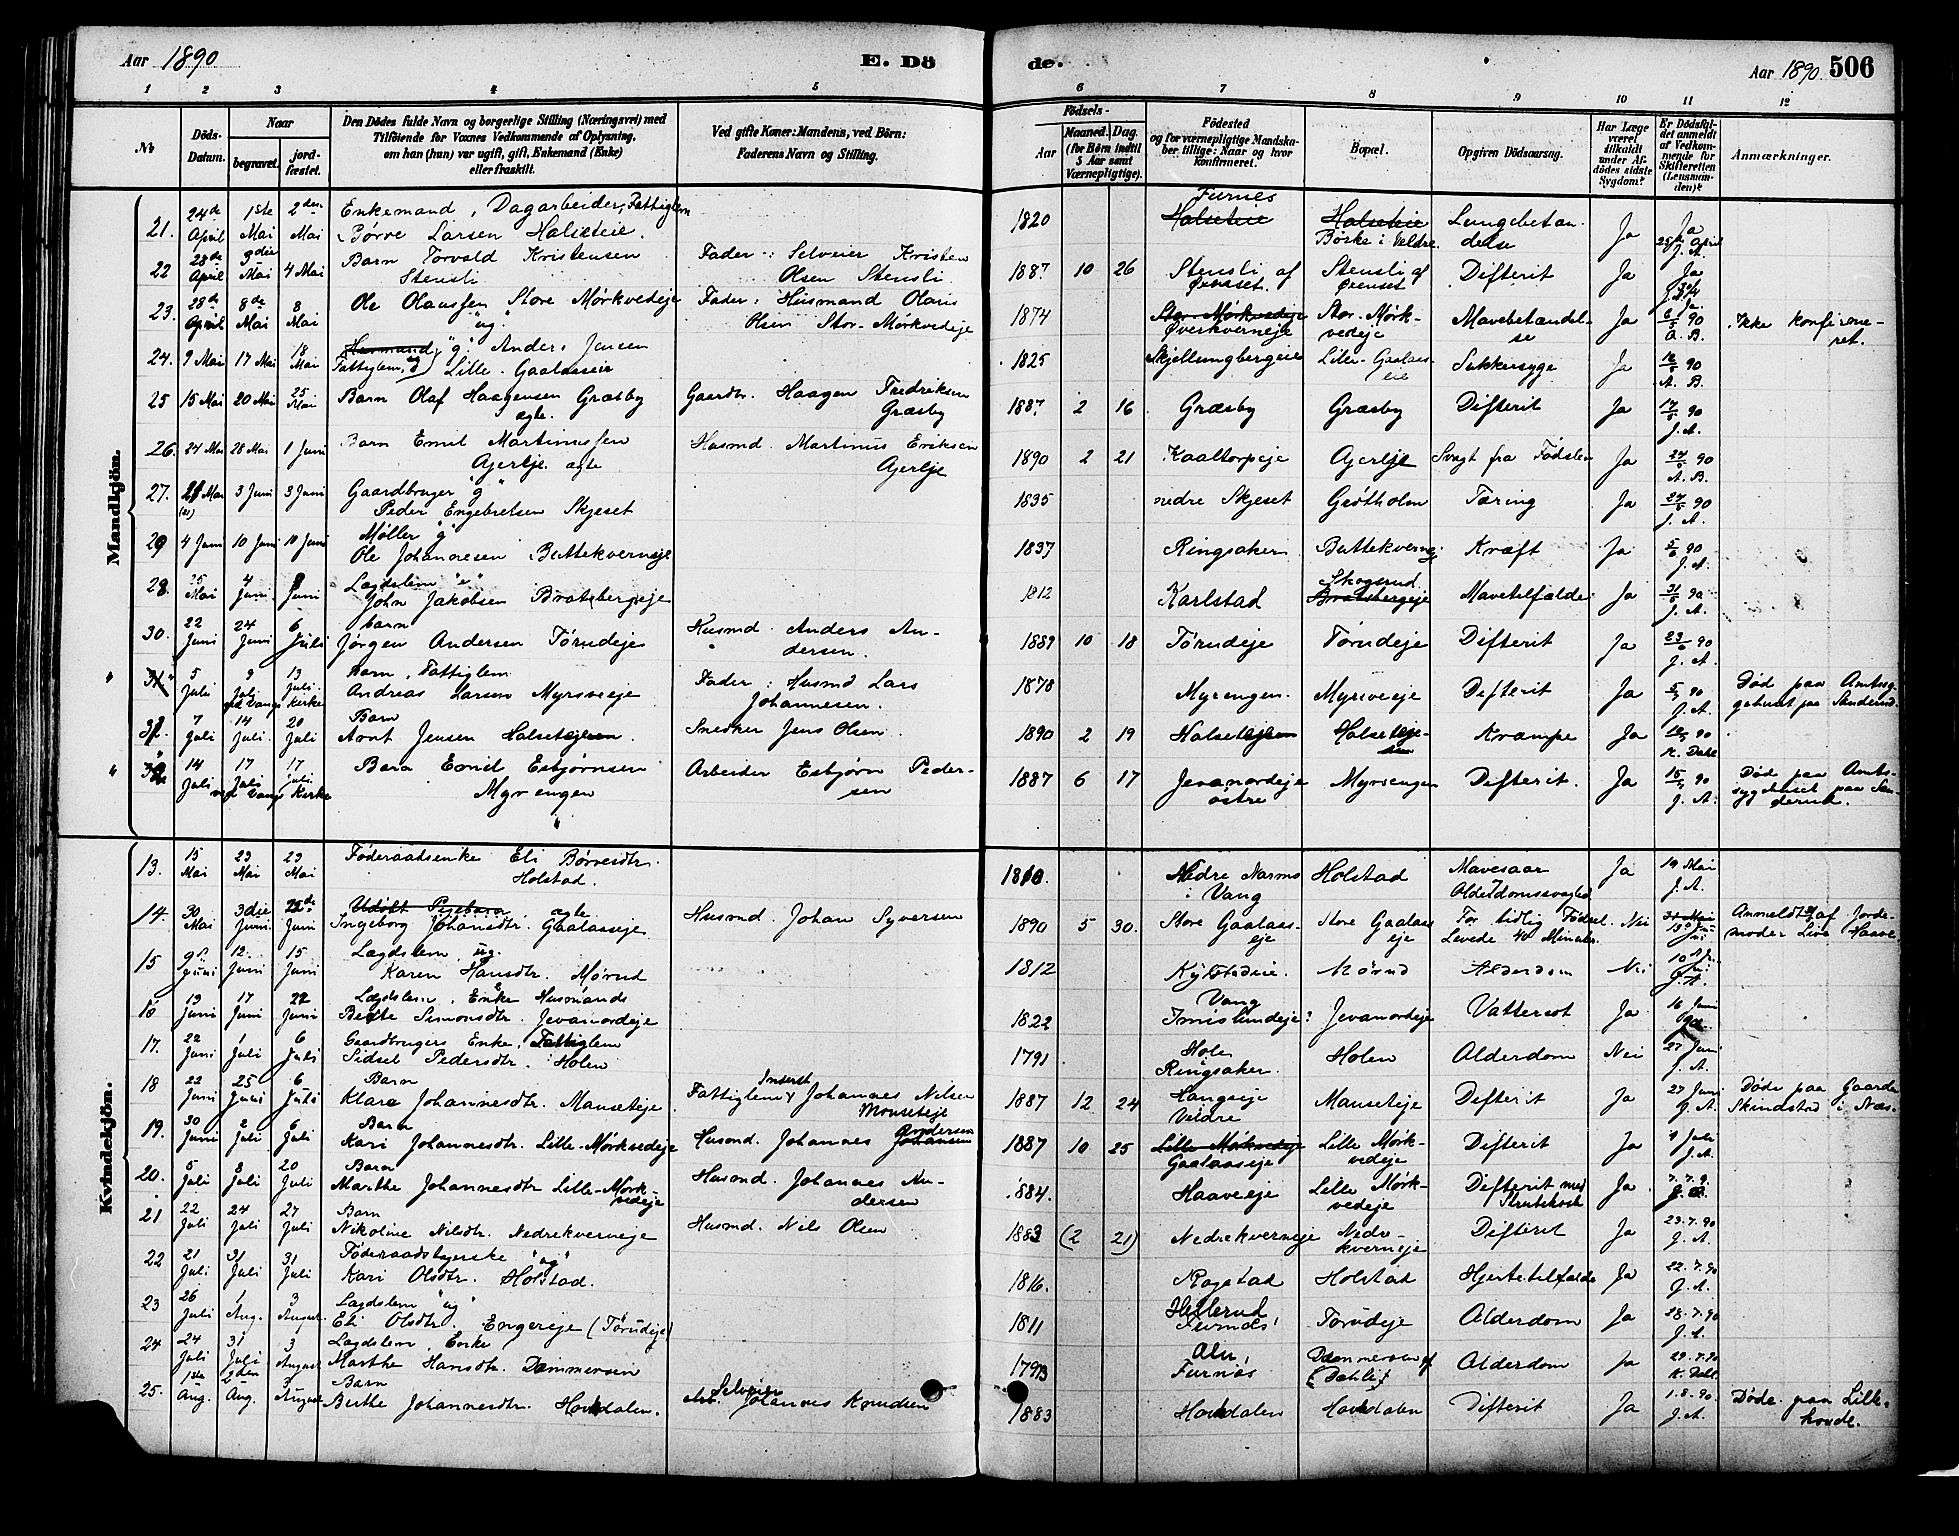 Aar 1890
E. Dö
de.
Aar 1890 506
1 2 3 4 5 6 7 8 9 10 11 12
No
Döds-Datum.
Naar
begravet.
jord-fæstet.
Den Dödes fulde Navn og borgerlige Stilling (Næringsvei) med
Tilföiende for Voxnes Vedkommende af Oplysning,
om han (hun) var ugift, gift, Enkemand (Enke)
eller fraskilt.
Ved gifte Koner: Mandens, ved Börn:
Faderens Navn og Stilling.
Födsels-
Aar
Maaned. Dag.
(for Börn indtil
5 Aar samt
Værnepligtige).
Födested
og for værnepligtige Mandska-
ber tillige: Naar og hvor
konfirmeret.
Bopæl.
Opgiven Dödsaarsag.
Har Læge
været
tilkaldt
under Af-
dödes sidste
Sygdom?
Er Dödsfal-
det anmeldt
af Vedkom-
mende for
Skifteretten
(Lensman-
den)?
Anmærkninger.
Mandkjön.
21. 24de April 1ste Mai 2den Mai Enkemand, Dagarbeider, Fattiglem Børre Larsen Halseteie. 1820 Furnes Halseteie Halseteie Børke i Veldre Lungebetændelse Ja Ja 25de April J. A.
22 28de April 3die Mai 4 Mai Barn Torvald Kristensen Stensli Fader: Selveier Kristen Olsen Stensli 1887 10 26 Stensli af Stensli af Difterit Ja Ja
23. 28de April 8de Mai 8 Mai Ole Olaussen Store Mørkvedeje "ug." Fader: Husmand Olaus Olsen Stor-Mørkvedeje 1874 Stor-Mørkvedeje Øverkverneje Stor-Mørkvedeje Mavebetændelse Ja Ja 6/5 90 A. B. Ikke konfirmeret.
24. 9 Mai 17 Mai 18 Mai Husmand, "g" Anders Jensen Fattiglem, Lille-Gaalaaseie 1825 Skjellungbergeie Lille-Gaalaaseie Sukkersyge Ja 12/5 90 A. B.
25 15 Mai 20 Mai 25 Mai Barn Olaf Haagensen Græsby ægte. Gaardbr. Haagen Fredriksen Græsby 1887 2 16 Græsby Græsby Difterit Ja 17/5 90 J. A.
26. 24 Mai 28 Mai 1 Juni Barn Emil Martinussen Agerleje. ægte Husmd. Martinus Eriksen Agerleje 1890 2 21 Kaaltorpeje Agerleje Svagt fra Fødslen Ja 24/5 90 A. B.
27. 21 Mai 3 Juni 3 Juni Gaardbruger "g" Peder Engebretsen Skjeset 1835 nedre Skjeset Grøtholm Tæring Ja 24/5 90 J. A.
29 4 Juni 10 Juni 10 Juni Møller "g" Ole Johannesen Buttekverneje 1837 Ringsaker Buttekverneje Kræft Ja 5/6 90 J. A.
28. 25 Mai 4 Juni 8 Juni Lægdslem "e" John Jakobsen Bratsbergeje 1812 Karlstad Skogsrud Bratsbergeje Mavetilfælde Ja 31/5 90 J. A.
30. 22 Juni 24 Juni 6 Juli barn Jørgen Andersen Tørudeje Husmd. Anders Andersen. 1889 10 18 Tørudeje Tørudeje Difterit Ja 23/6 90 J. A.
31 5 Juli 9 Juli 13 Juli ved Vangs Kirke barn, Fattiglem Andreas Larsen Myrsveje Fader: Husmd Lars Johannesen. 1878 Myrengen. Myrsveje Difterit Ja 5/7 90 J. A. Død paa Amtssygehuset paa Sanderud.
31. 7 Juli 14 Juli. 20 Juli Barn Arnt Jensen Halseteje Snedker Jens Olsen. 1890 2 19 Halseteje Halseteje Krampe Ja 90 K. Dahl
32 14 Juli 17 Juli 17 Juli ved Vangs Kirke Barn Emil Esbjørnsen Myrengen Arbeider Esbjørn Pedersen 1887 6 17 Jevanordeje østre Myrsengen Difterit. Ja 15/7 90 J. A. Død paa Amtssygehuset paa Sanderud.
Kvindekjön.
13. 15 Mai 23 Mai 23 Mai Føderaadsenke Eli Børresdtr. Holstad. 1810. Nedre Narmo i Vang Holstad Mavesaar Alderdomssvaghed Ja 19 Mai J. A.
14. 30 Mai 3die Juni 22de Juni Udøbt Pigebarn ægte Ingeborg Johansdtr. Gaalaaseje Husmd. Johan Syversen 1890 5 30. Store Gaalaaseje Store Gaalaaseje For tidlig Fødsel. Levede 40 Minuter. Nei 31 Mai Anmeldt af Jordemoder Live Haave
15 9. Juni 12. Juni 15 Juni Lægdslem, ug. Karen Hansdtr. Mørud 1812 Kylstadeie Mørud Alderdom Nei 10 Juni J. A.
16 13 Juni 17 Juni 22 Juni Lægdslem, Enke Husmands Berte Simonsdtr. Jevanordeje 1822 Vang Imislundeje? Jevanordeje Vattersot Ja 16 Juni
17. 22 Juni 1 Juli 6 Juli Gaardbrugers Enke, Fattiglem Sidsel Pedersdtr. Holen 1791 Hole Ringsaker. Holen Alderdom Nei 27 Juni J. A.
18 22 Juni 25 Juni 6 Juli Barn Klara Johannesdtr. Mauseteje Fattiglem Inderst Johannes Nilsen Mauseteje 1887 12 24 Haugseje Veldre Mauseteje Difterit Ja 27 Juni J. A. Døde paa Gaarden Skindstad i Næs.
19. 30 Juni 2 Juli 6 Juli Barn Kari Johannesdtr. Lille-Mørkvedeje Husmd. Johannes Andersen Johansen 1887 10 25 Lille-Mørkvedeje Gaalaaseje Lille Mørkvedeje Difterit Ja 1 Juli J. A.
20. 5 Juli 8 Juli 20 Juli Barn Marthe Johannesdtr Lille-Mørkvedeje Husmd. Johannes Andersen 1884. Haaveeje Lille Mørkvedeje Difterit med Strubehoste Ja. 7.7.90
21 22 Juli 24 Juli 27 Juli Barn Nikoline Nilsdtr. Nedrekverneje Husmd. Nils Olsen 1883 (2 21) Nedrekverneje Nedrekverneje Difterit Ja 23.7.90 J. A.
22 21 Juli 31 Juli 31 Juli Føderaadstagerske "ug" Kari Olsdtr. Holstad. 1816. Rogstad Holstad Hjertetilfælde Ja 22.7.90 J. A.
23 26 Juli 1 Aug. 3 August Lægdslem "ug" Eli Olsdtr. Engereje (Tørudeje) 1811 Hellerud Furnæs Tørudeje Alderdom Ja 28.7.90 J. A.
24 24 Juli 31 Juli 3 August Lægdslem, Enke Marthe Hansdtr. Dæmmersen 1793 Alu, Furnæs Dæmmersen af (Dæhli) Alderdom Ja 29.7.90 K. Dahl.
25. 1ste Aug. 2den Aug. 3 August Barn Berthe Johannesdtr. Hovdalen. Selveier Johannes Knudsen 1883 Hovdalen Hovdalen Difterit Ja 1.8.90 J. A. Døde paa Lillehovde.